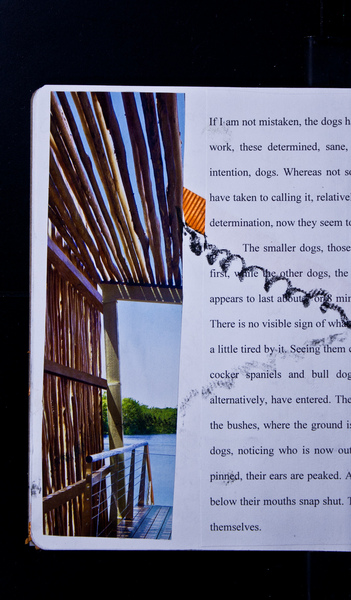 If I am not mistaken, the dogs h
work, these determined, sane,
intention, dogs. Whereas not s
have taken to calling it, relative
determination, now they seem to
The smaller dogs, those
first, while the other dogs, the
appears to last about 7 or 8 min
There is no visible sign of what
a little tired by it. Seeing them
cocker spaniels and bull dog
alternatively, have entered. The
the bushes, where the ground is
dogs, noticing who is now out
pinned, their ears are peaked. A
below their mouths snap shut. T
themselves.